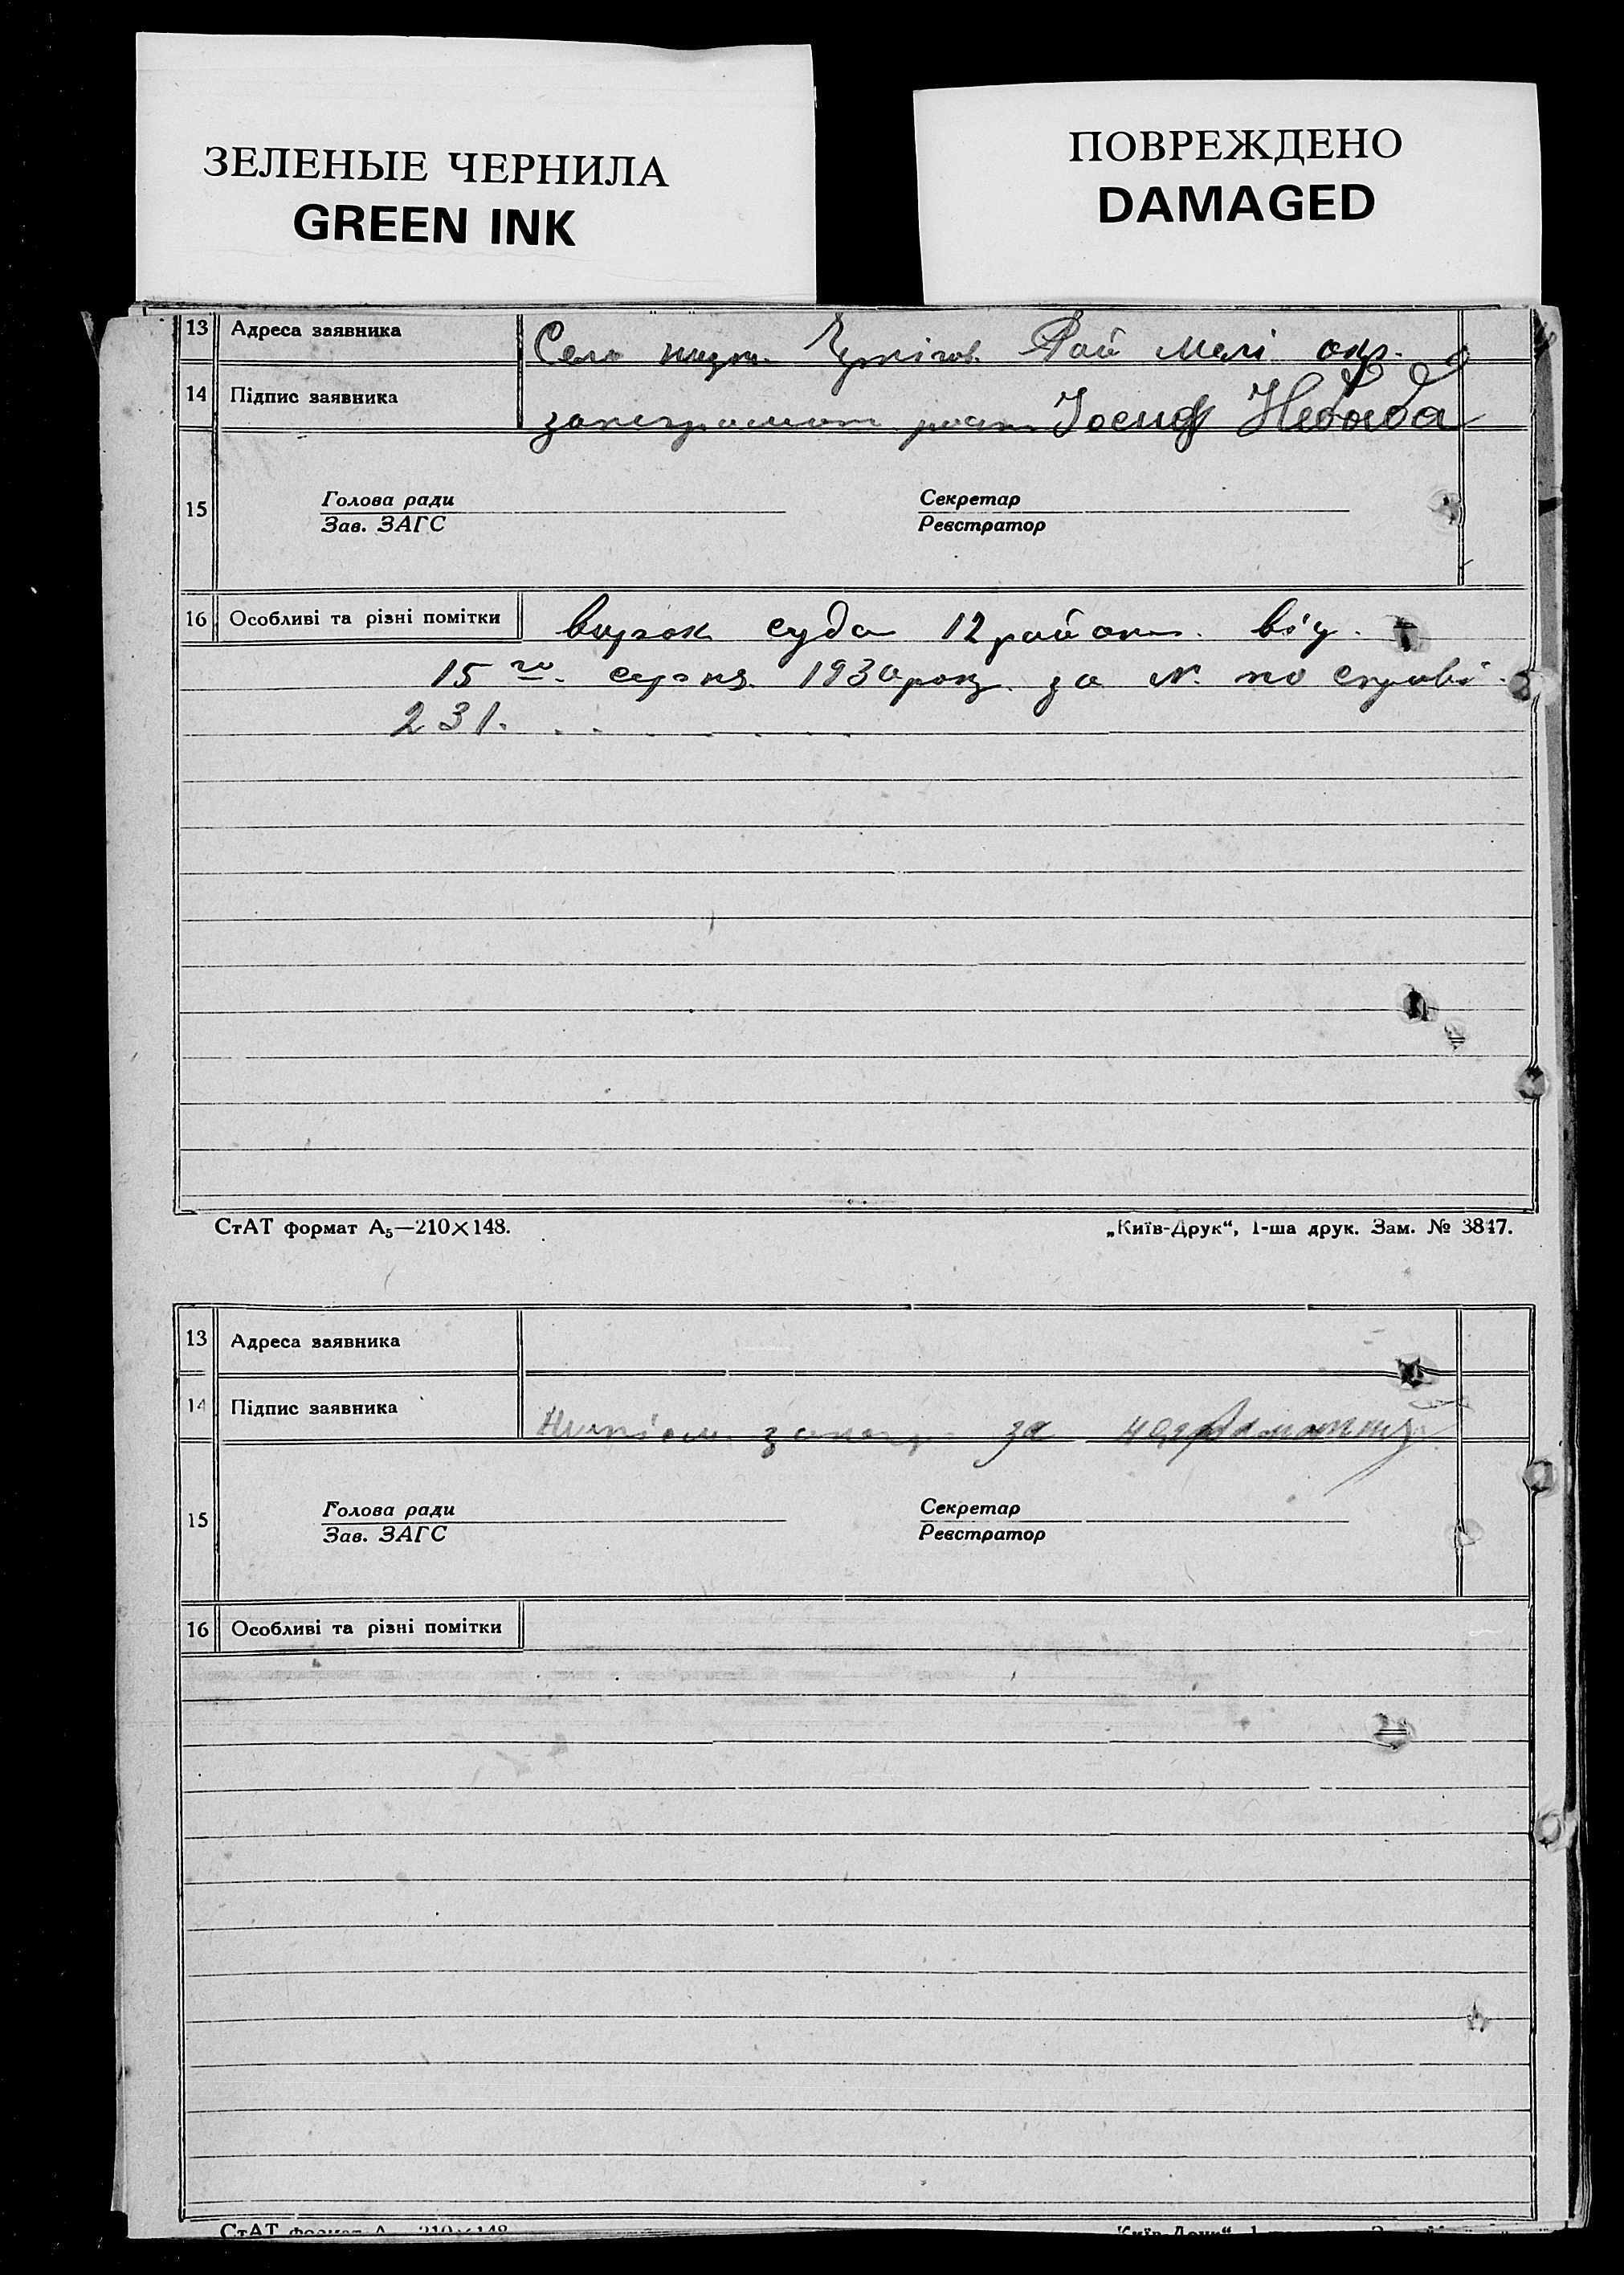 ЗЕЛЕНЫЕ ЧЕРНИЛА
GREEN INK
ПОВРЕЖДЕНО
DAMAGED
13 Адреса заявника Село Рай Мелі окр.
14 Підпис заявника Іосиф Небаба
15 Голова ради Секретар
Зав. ЗАГС Реєстратор
16 Особливі та різні помітки вирок суда 12 район від
15 го серпня 1930 року за № по справі
231.
СтАТ формат А5—210×148. „Київ-Друк“, 1-ша друк. Зам. № 3847.
13 Адреса заявника
14 Підпис заявника за
15 Голова ради Секретар
Зав. ЗАГС Реєстратор
16 Особливі та різні помітки